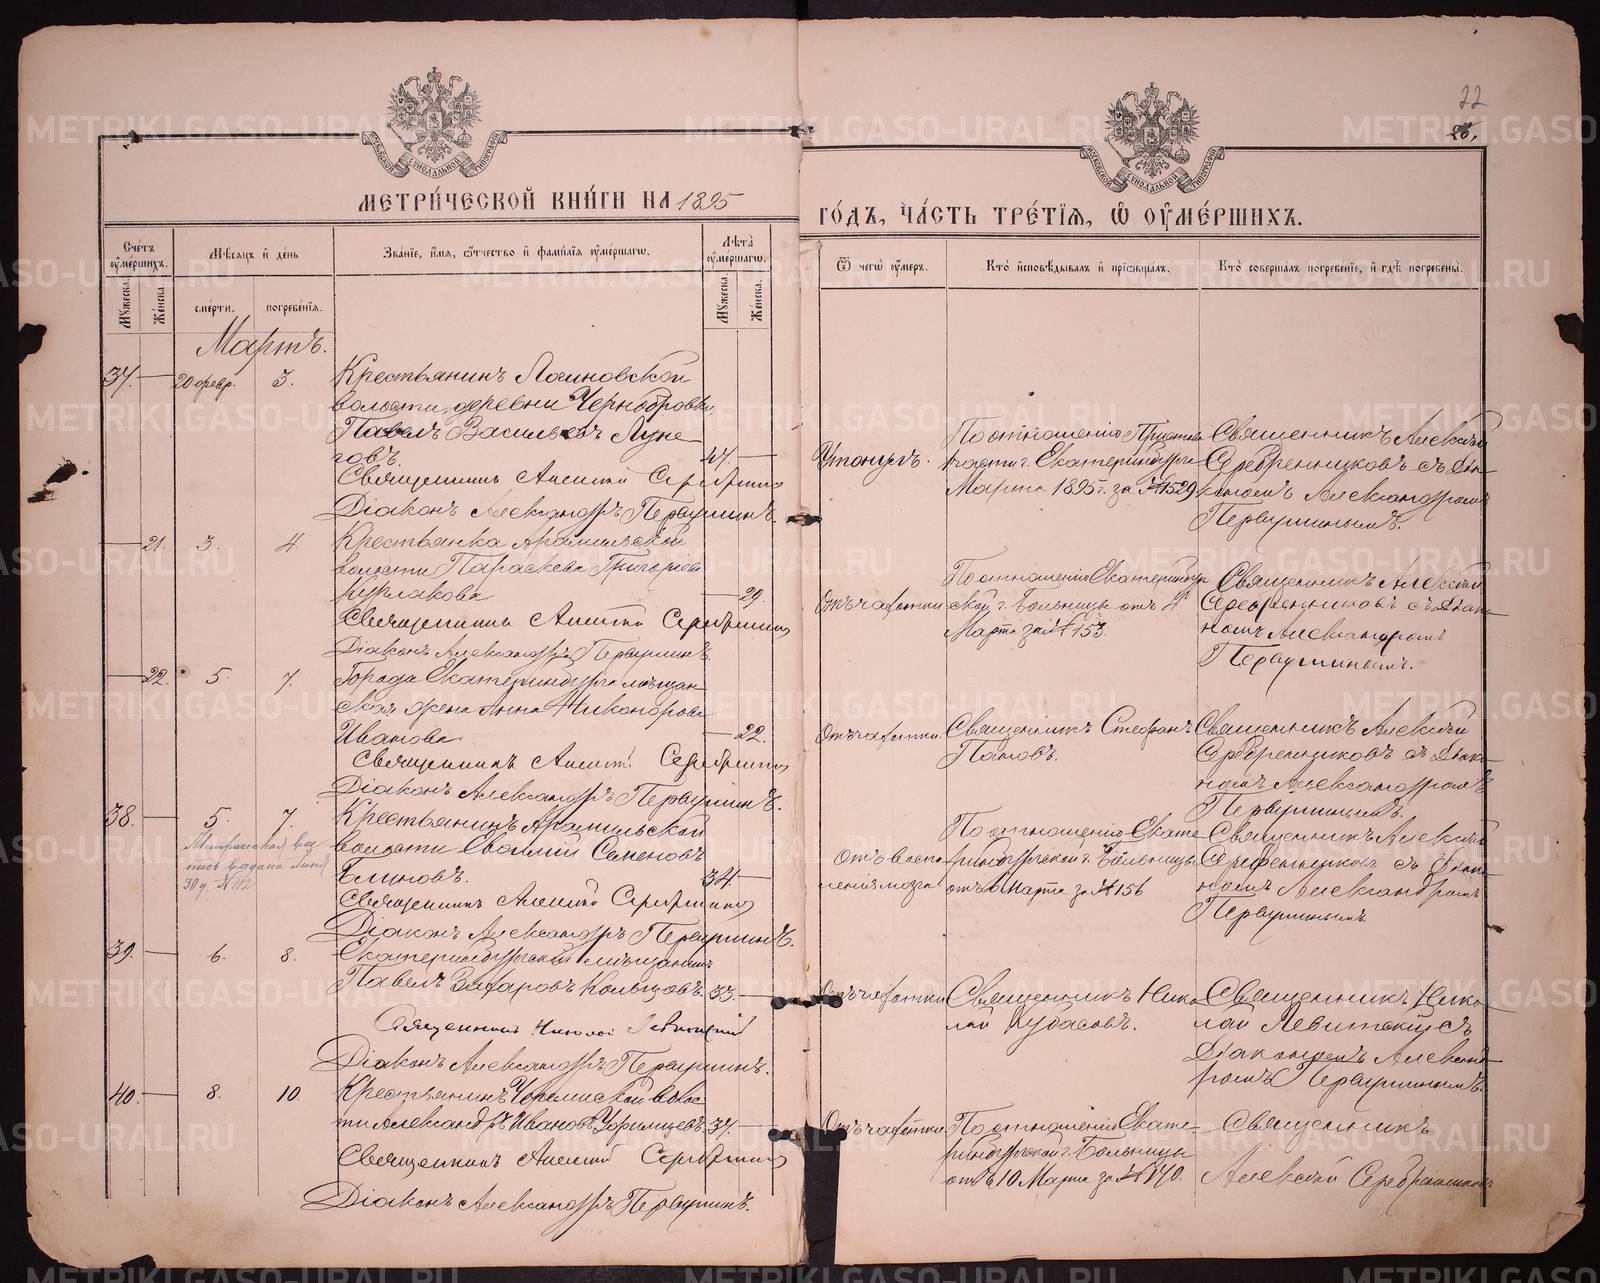 22
26.
МЕТРИ́ЧЕСКОЙ КНИ́ГИ НА 1895
ГО́ДЪ, ЧА́СТЬ ТРЕ́ТІѦ, Ѿ ОУМЕ́РШИХЪ.
Счетъ оумершихъ.
Мѣсяцъ и день
Званіе, имя, отчество и фамилія оумершагѡ.
Лѣта оумершагѡ.
Ѿ чегѡ оумеръ.
Кто исповѣдывалъ и пріобщалъ.
Кто совершалъ погребеніе, и гдѣ погребены.
Мужеска.
Женска.
смерти.
погребенія.
Мужеска.
Женска.
Мартъ.
37. 20 февр. 3.
Крестьянинъ
волости, деревни Чернобровки
Павелъ Васильевъ Луне
говъ. 47.
Священникъ Алексій
Діаконъ Александръ Первушинъ.
Утонулъ.
По отношенію Пристава
части г. Екатеринбурга
Марта 1895 г. за № 1529
Священникъ Алексій
Серебренниковъ съ Діа
кономъ Александромъ
Первушинымъ.
21. 3. 4.
Крестьянка Арамильской
волости Параскева Григорьева
Курлакова 29.
Священникъ Алексій
Діаконъ Александръ Первушинъ.
Отъ чахотки
По отношенію Екатеринбург
ской г. Больницы отъ 4
Марта за № 153.
Священникъ Алексій
Серебренниковъ съ Діако
номъ Александромъ
Первушинымъ.
22. 5. 7.
Города Екатеринбурга мѣщан
ская жена Анна Никонорова
Иванова 22.
Священникъ Алексій
Діаконъ Александръ Первушинъ.
Отъ чахотки.
Священникъ Стефанъ
Поповъ.
Священникъ Алексій
Серебренниковъ съ Діако
номъ Александромъ
Первушинымъ.
38. 5. 7.
Крестьянинъ Арамильской
волости Евфимій Семеновъ
Блиновъ. 34.
Священникъ Алексій
Діаконъ Александръ Первушинъ.
Отъ воспа
ленія мозга
По отношенію Екате
ринбургской г. Больницы
отъ 6 Марта за № 156
Священникъ Алексій
Серебренниковъ съ Діако
номъ Александромъ
Первушинымъ.
39. 6. 8.
Екатеринбургскій мѣщанинъ
Павелъ Захаровъ Кольцовъ. 33.
Священникъ Николай Левитскій
Діаконъ Александръ Первушинъ.
Отъ чахотки
Священникъ Нико
лай Кубасовъ.
Священникъ Нико
лай Левитскій съ
Діакономъ Александ
ромъ Первушинымъ.
40. 8. 10.
Крестьянинъ волос
ти Александръ Ивановъ 37.
Священникъ Алексій
Діаконъ Александръ Первушинъ.
Отъ чахотки.
По отношенію Екате
ринбургской г. Больницы
отъ 10 Марта за № 170.
Священникъ
Алексій Серебренниковъ
METRIKI.GASO-URAL.RU